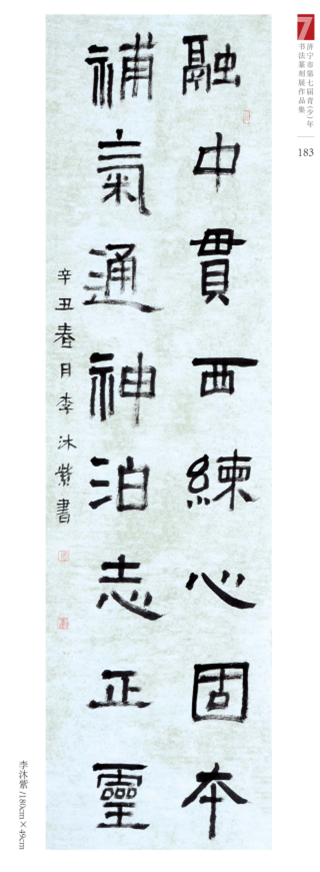 融中貫西練心固本
補氣通神泊志正靈
辛丑春月李沐紫書
7
济宁市第七届青(少)年
书法篆刻展作品集
183
李沐紫/180cm×49cm